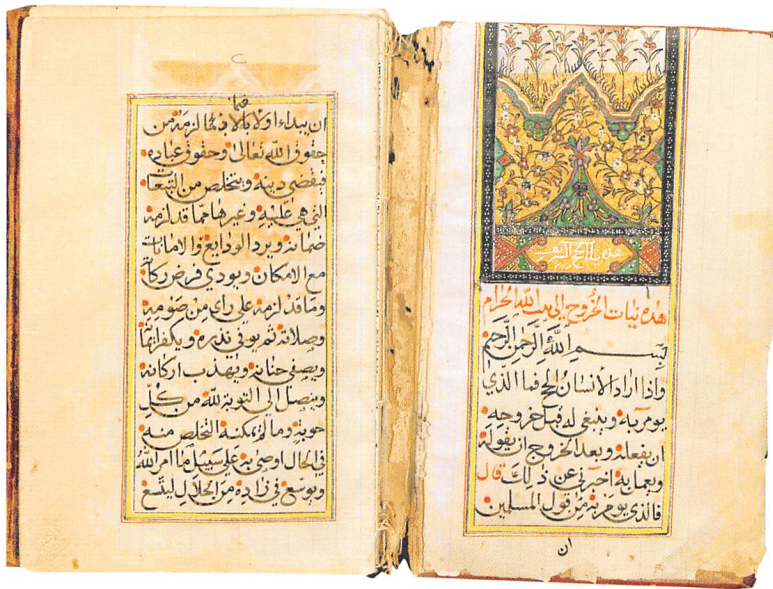 هذه نيات الحج الشريف
هذه نيات الخروج إلى بيت الله الحرام
بسم الله الرحمن الرحيم
واذا اراد الانسان الحج فما الذي
يومر به وينبغي له قبل خروجه
ان يفعله وبعد الخروج ان يقوله
ويعمل به اخبرني عن ذلك قال
فالذي يومر به من قول المسلمين
ان
ان يبداء اولا بالاداء لما لزمه من
حقوق الله تعالى وحقوق عباده
فيقضي دينه ويتخلص من التبعات
التي هي عليه وغيرها مما قد لزمه
ضمانه ويرد الودايع والامانات
مع الامكان ويودي فرض زكاته
وما قد لزمه على راي من صومه
وصلاته ثم يوفي نذره ويكفر ايمانه
ويصفي جنانه ويهذب اركانه
وينصل الى التوبة لله من كل
حوبة وما لم يمكنه التخلص منه
في الحال اوصى به على سبيل ما امر الله
ويوسع في زاده من الحلال ليتسع